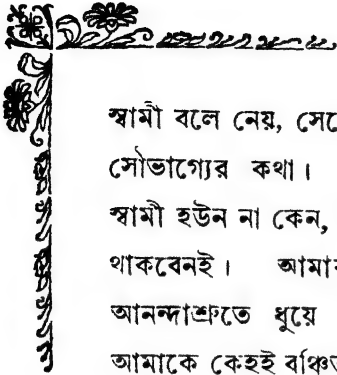 স্বামী বলে নেয়, সে
সৌভাগ্যের কথা।
স্বামী হউন না কেন,
থাকবেনই। আমা
আনন্দাশ্রুতে ধুয়ে
আমাকে কেহই বঞ্চিত